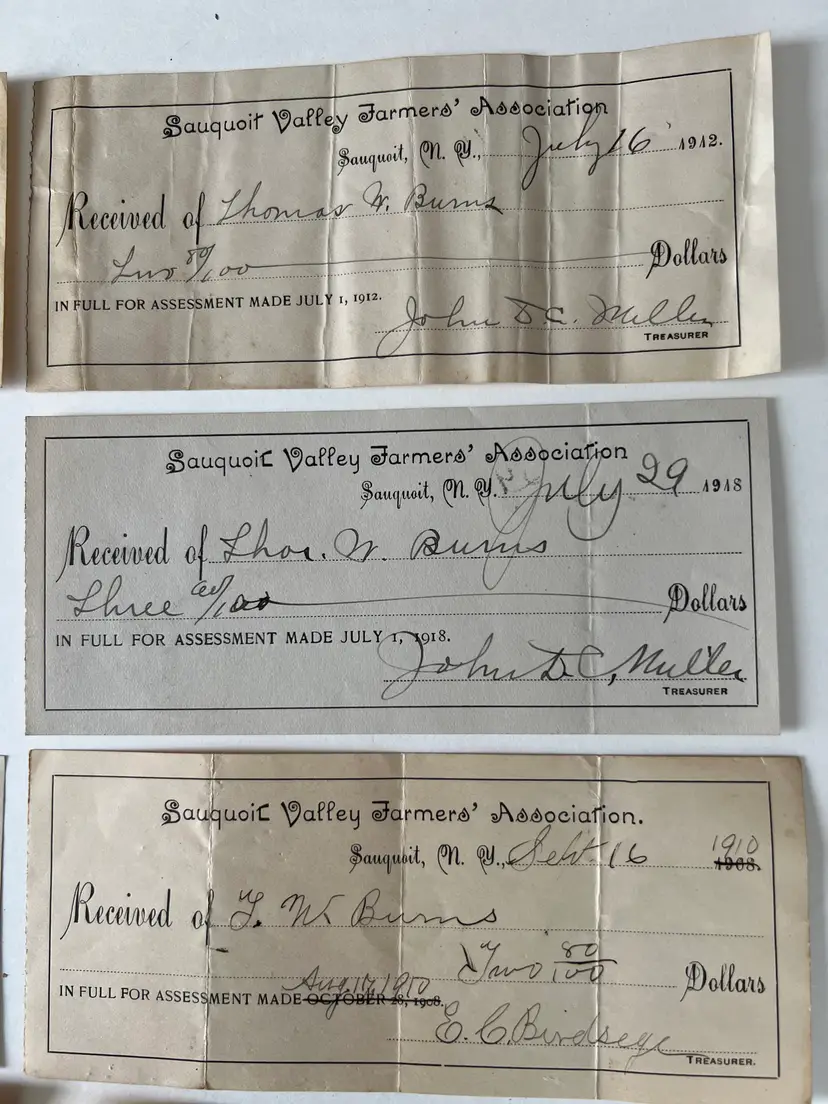 Sauquoit Valley Farmers' Association
Sauquoit, N. Y., July 16 1912.
Received of Thomas W. Burns
Two 80/100 Dollars
IN FULL FOR ASSESSMENT MADE JULY 1, 1912.
John D C. Miller
TREASURER
Sauquoit Valley Farmers' Association
Sauquoit, N. Y. July 29 1918
Received of Thos. W. Burns
Three /100 Dollars
IN FULL FOR ASSESSMENT MADE JULY 1, 1918.
John D C, Miller
TREASURER
Sauquoit Valley Farmers' Association.
1910
Sauquoit, N. Y., Sept. 16 1908.
Received of T. W. Burns
Two 80/100 Dollars
Aug 1910
IN FULL FOR ASSESSMENT MADE OCTOBER 28, 1908.
E. C. Birdseye
TREASURER.